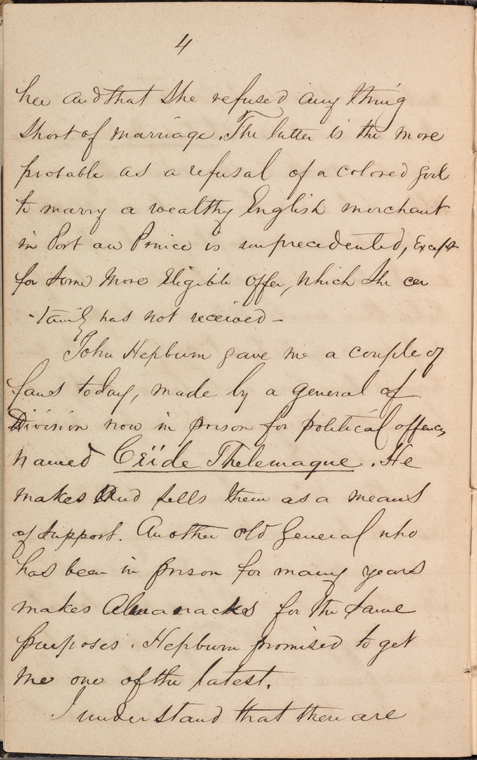 4
her and that she refused any thing
short of marriage. The latter is the more
probable as a refusal of a colored girl
to marry a wealthy English merchant
in Port au Prince is unprecedented, except
for some more eligible offer, which she cer
-tainly has not received -
John Hepburn gave me a couple of
fans today, made by a general of
Division now in prison for political offences,
named Ceïde Thelemaque. He
makes and sells them as a means
of support. Another old General who
has been in prison for many years
makes Almanacks for the same
purposes. Hepburn promised to get
me one of the latest.
I understand that there are